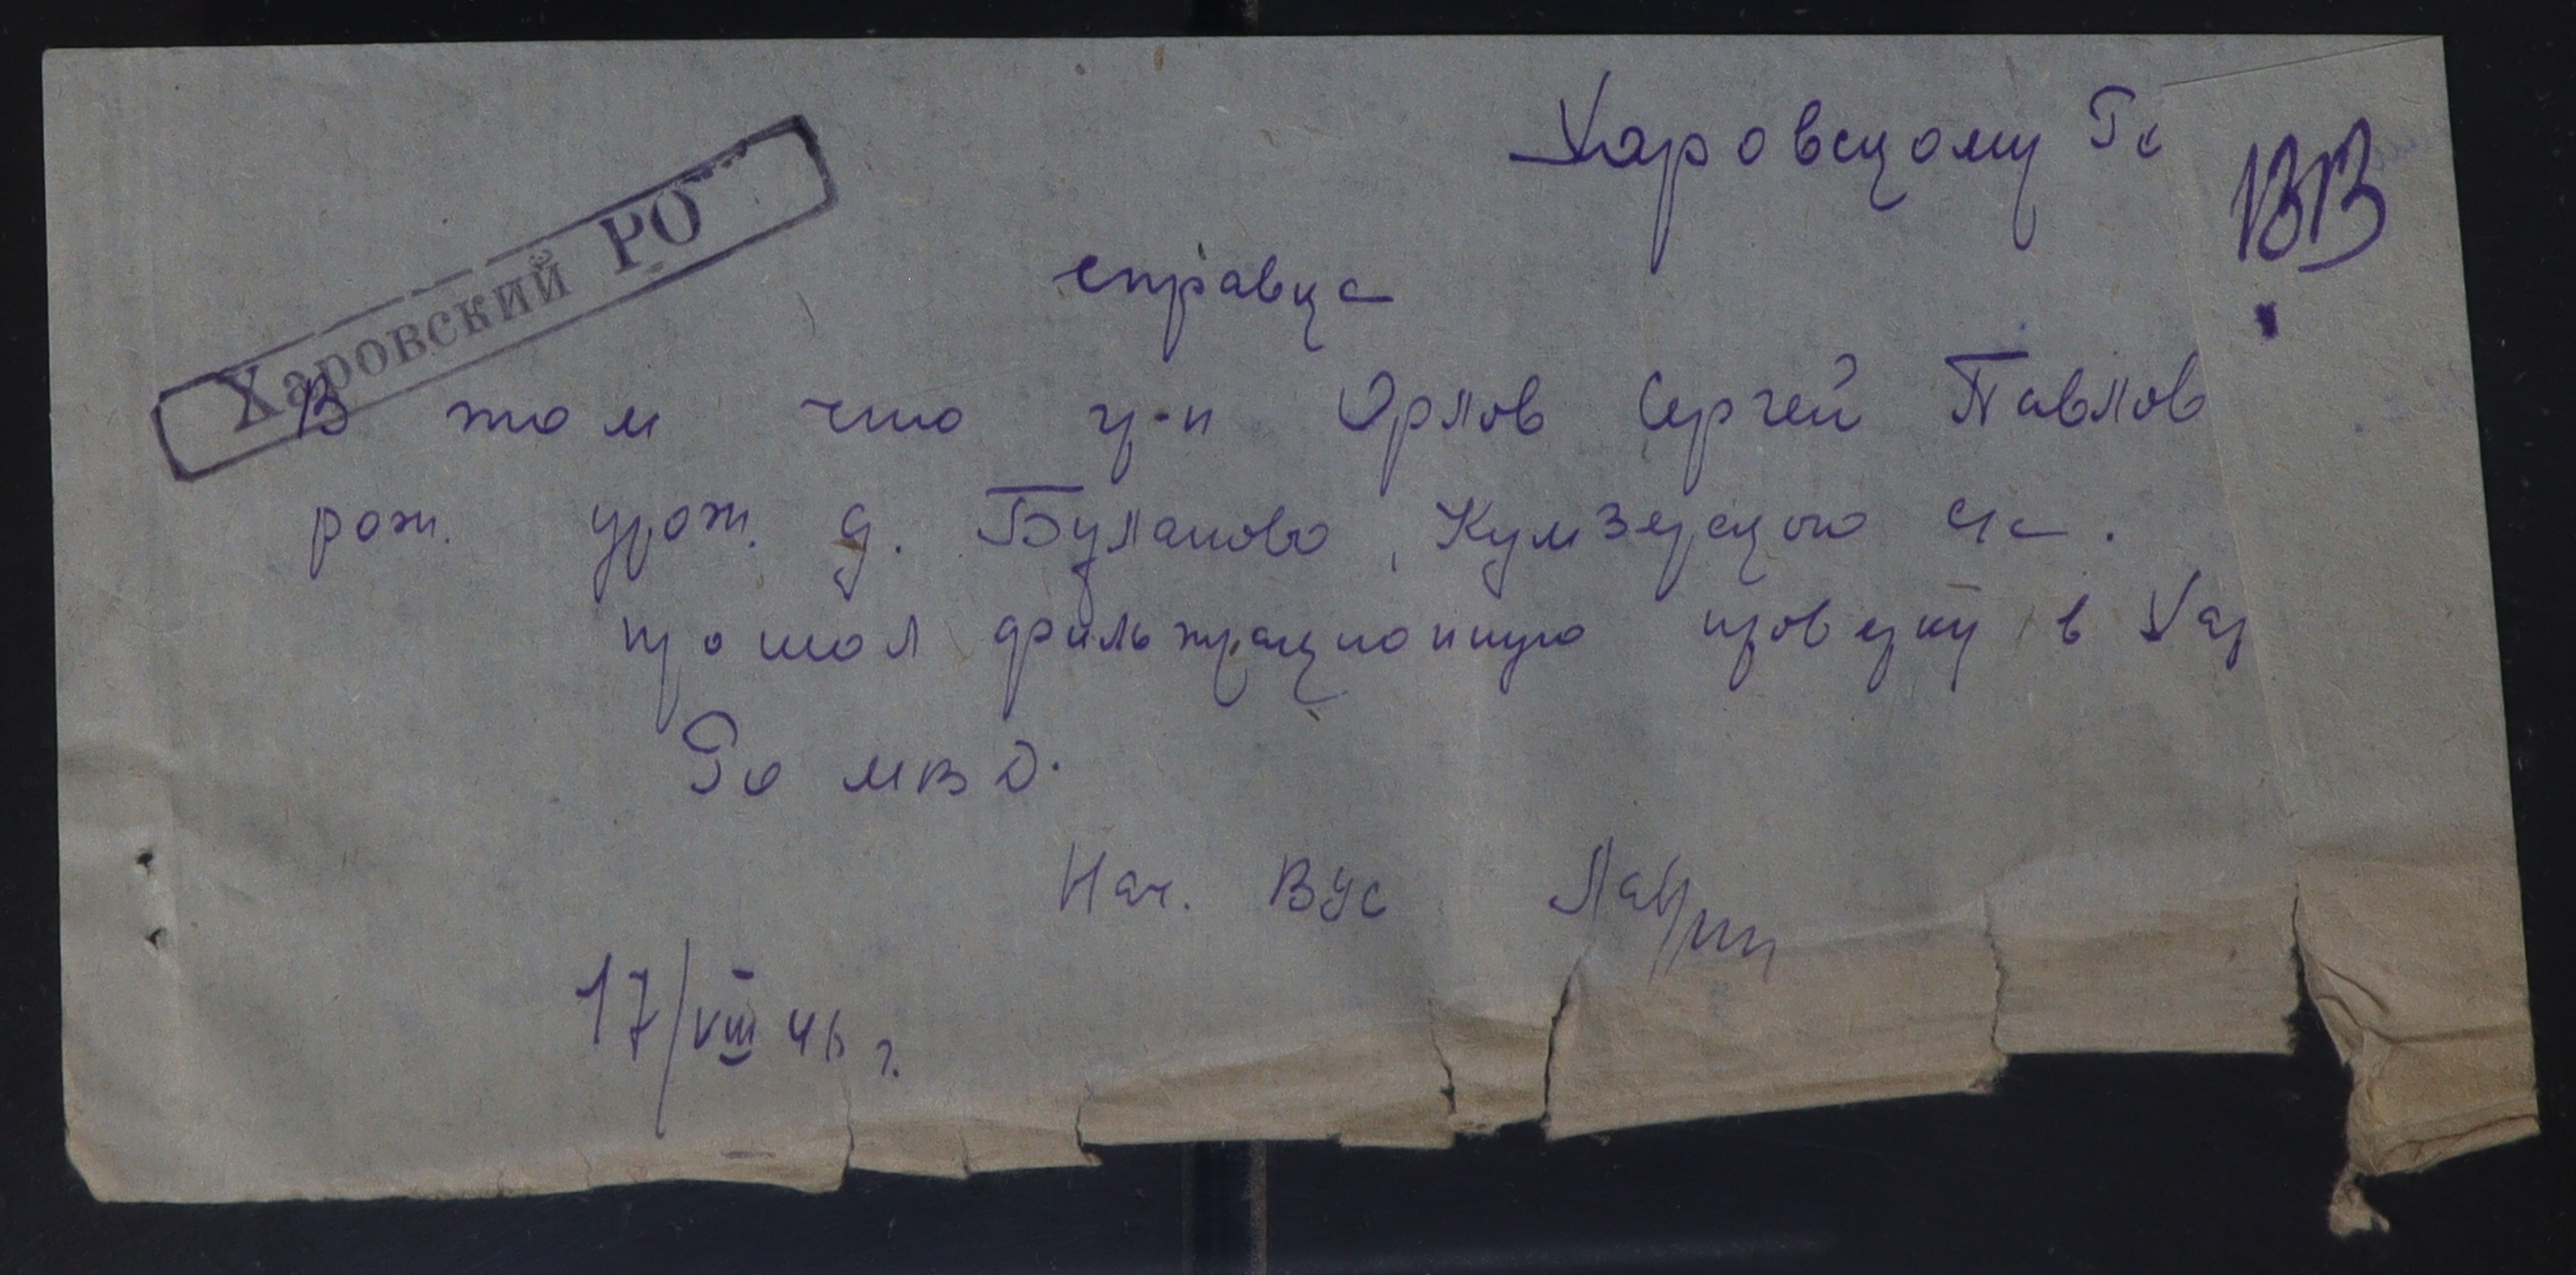 Харовскому Ро
133
Харовский РО
справка
В том что гр-н Орлов Сергей Павлов
рож. урож. д. Буланово, Кумзерского с/с.
прошол фильтрационную проверку в Хар
Ро МВД.
Нач. ВУС
17/VIII 46 г.